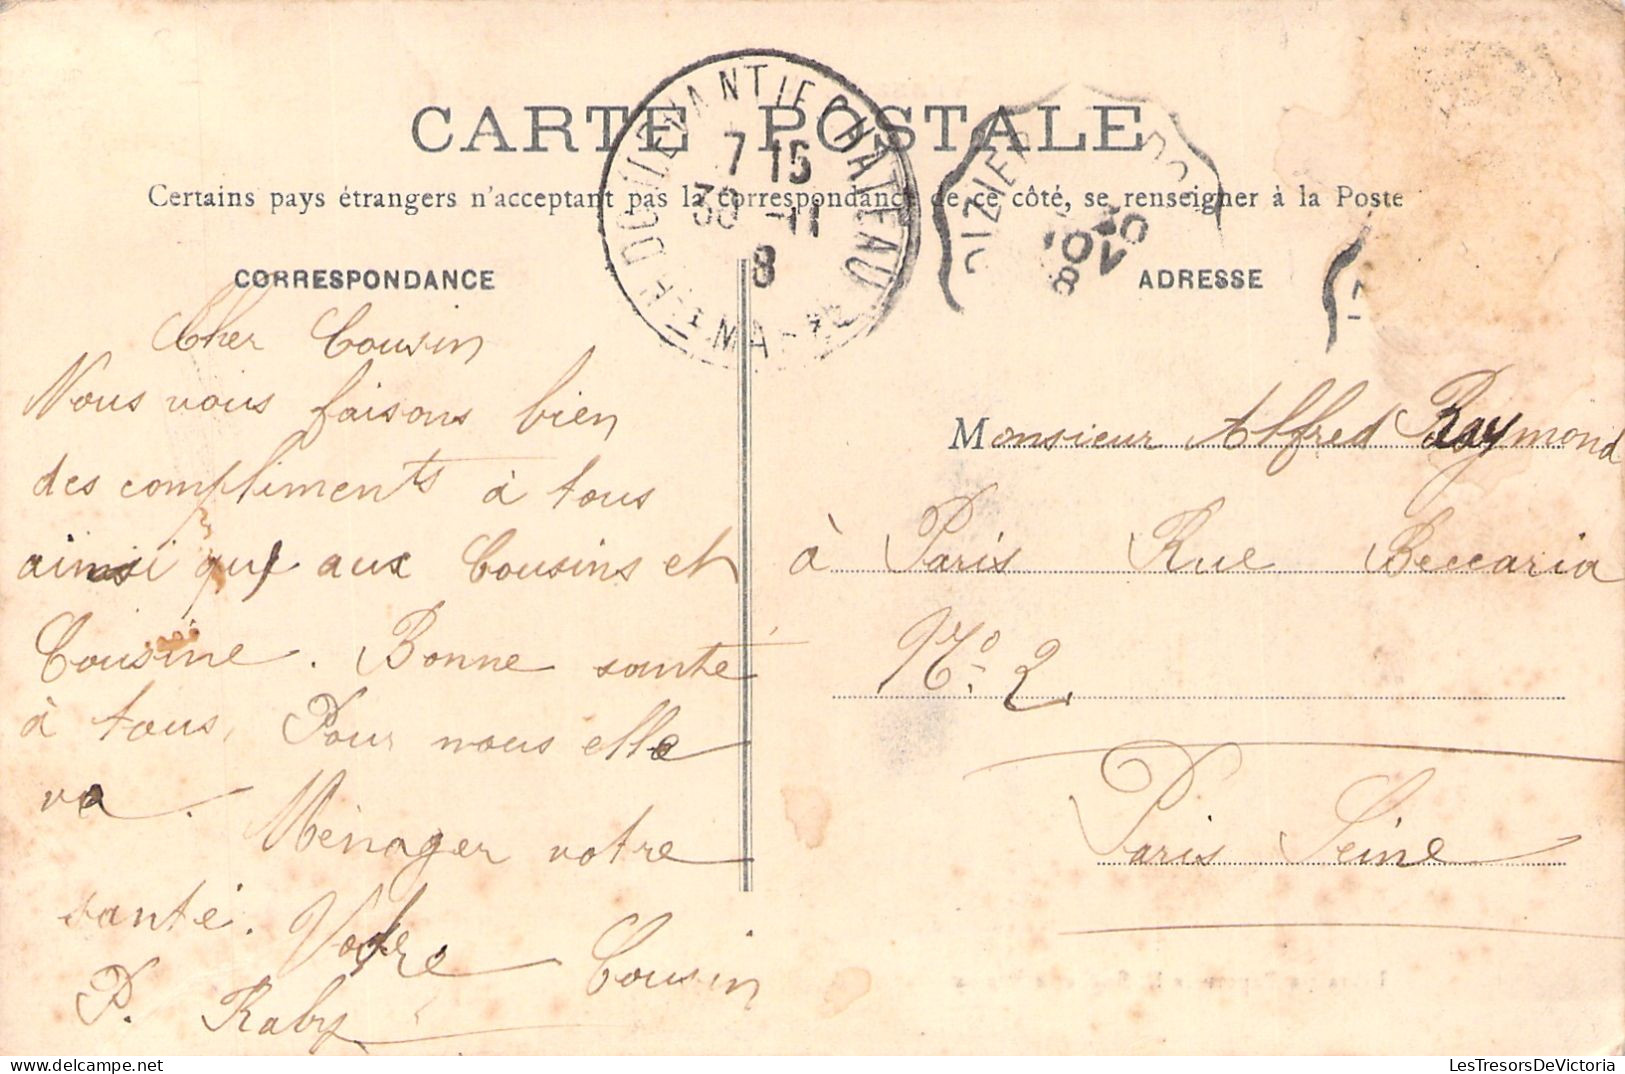 CARTE POSTALE
Certains pays étrangers n'acceptant pas la correspondance de ce côté, se renseigner à la Poste
DOULEVANT-LE-CHATEAU
7 15
30 -11
8
HTE MARNE
DIZIER
30
NOV
8
CORRESPONDANCE
Cher Cousin
Nous vous faisons bien
des compliments à tous
ainsi que aux Cousins et
Cousine. Bonne santé
à tous, Pour nous elle
va. Ménager votre
santé. Votre Cousin
P. Raby
ADRESSE
Monsieur Alfred Raymond
à Paris Rue Beccaria
No. 2.
Paris Seine
LesTresorsDeVictoria